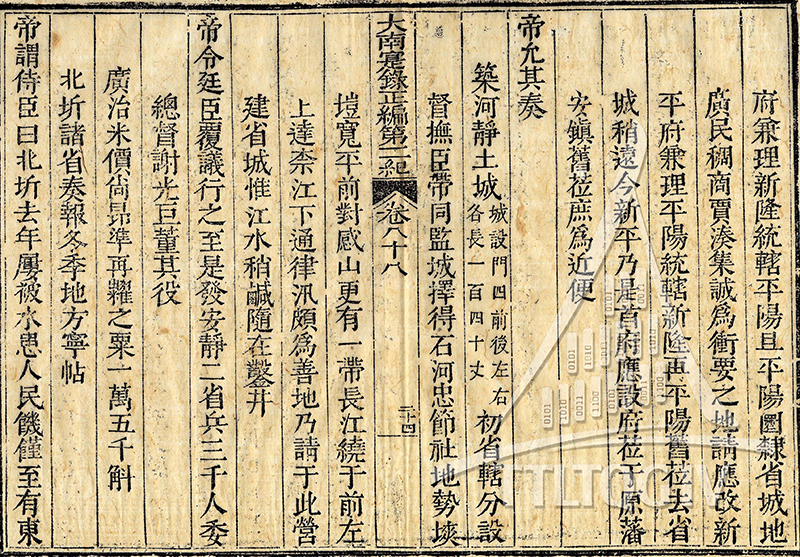 府兼理新隆統轄平陽且平陽圜隸省城地
廣民稠商賈湊集誠爲衝要之地請應改新
平府兼理平陽統轄新隆再平陽舊莅去省
城稍遠今新平乃是首府應設府莅于原藩
安鎮舊莅庶爲近便
帝允其奏
築河靜土城 城設門四前後左右 各長一百四十丈 初省轄分設
督撫臣帶同監城擇得石河忠節社地勢堗
大南寔錄正編第二紀 卷八十八 二十四
塏寬平前對感山更有一帶長江繞于前左
上達柰江下通律汛頗爲善地乃請于此營
建省城惟江水稍鹹隨在鑿井
帝令廷臣覆議行之至是發安靜二省兵三千人委
總督謝光巨董其役
廣治米價尚昂準再糶之粟一萬五千斛
北圻諸省奏報冬季地方寧帖
帝謂侍臣曰北圻去年屢被水患人民饑饉至有東